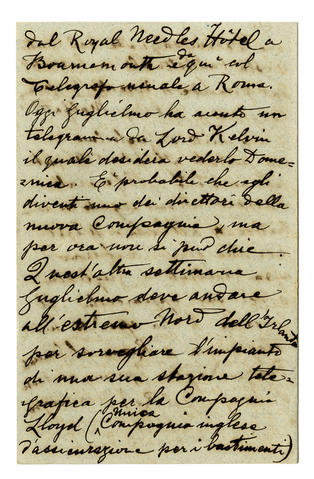 dal Royal Needles Hôtel a
Bournemouth e da qui col
telegrafo usuale a Roma.
Oggi Guglielmo ha avuto un
telegramma da Lord Kelvin
il quale desidera vederlo Dome=
nica. E' probabile che egli
diventi uno dei direttori della
nuova Compagnia, ma
per ora non si può dire.
Quest'altra settimana
Guglielmo deve andare
all'estremo Nord dell'Irlanda
per sorvegliare l'impianto
di una sua stazione tele=
grafica per la Compagnia
Lloyd (unica Compagnia inglese
d'assicurazione per i bastimenti)